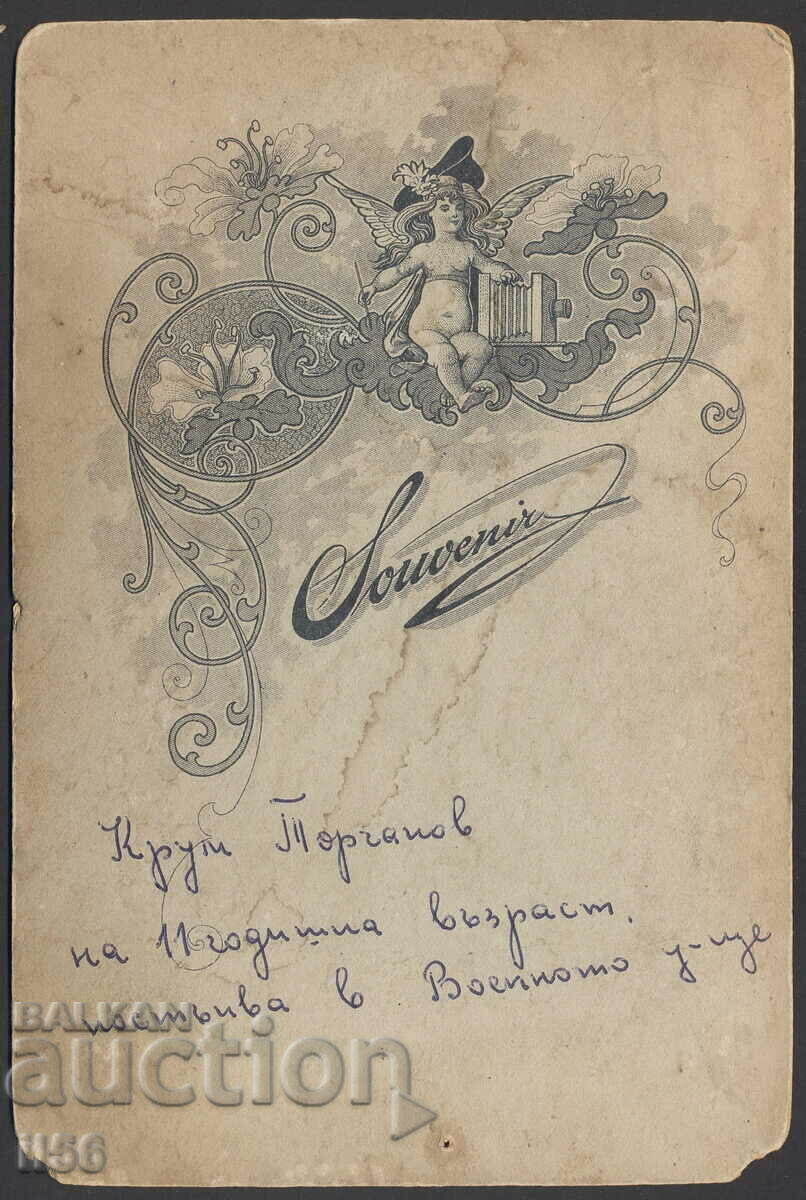 Souvenir
Крум Торчанов
на 11 годишна възраст,
постъпва в Военното у-ще
BALKAN
auction
il56